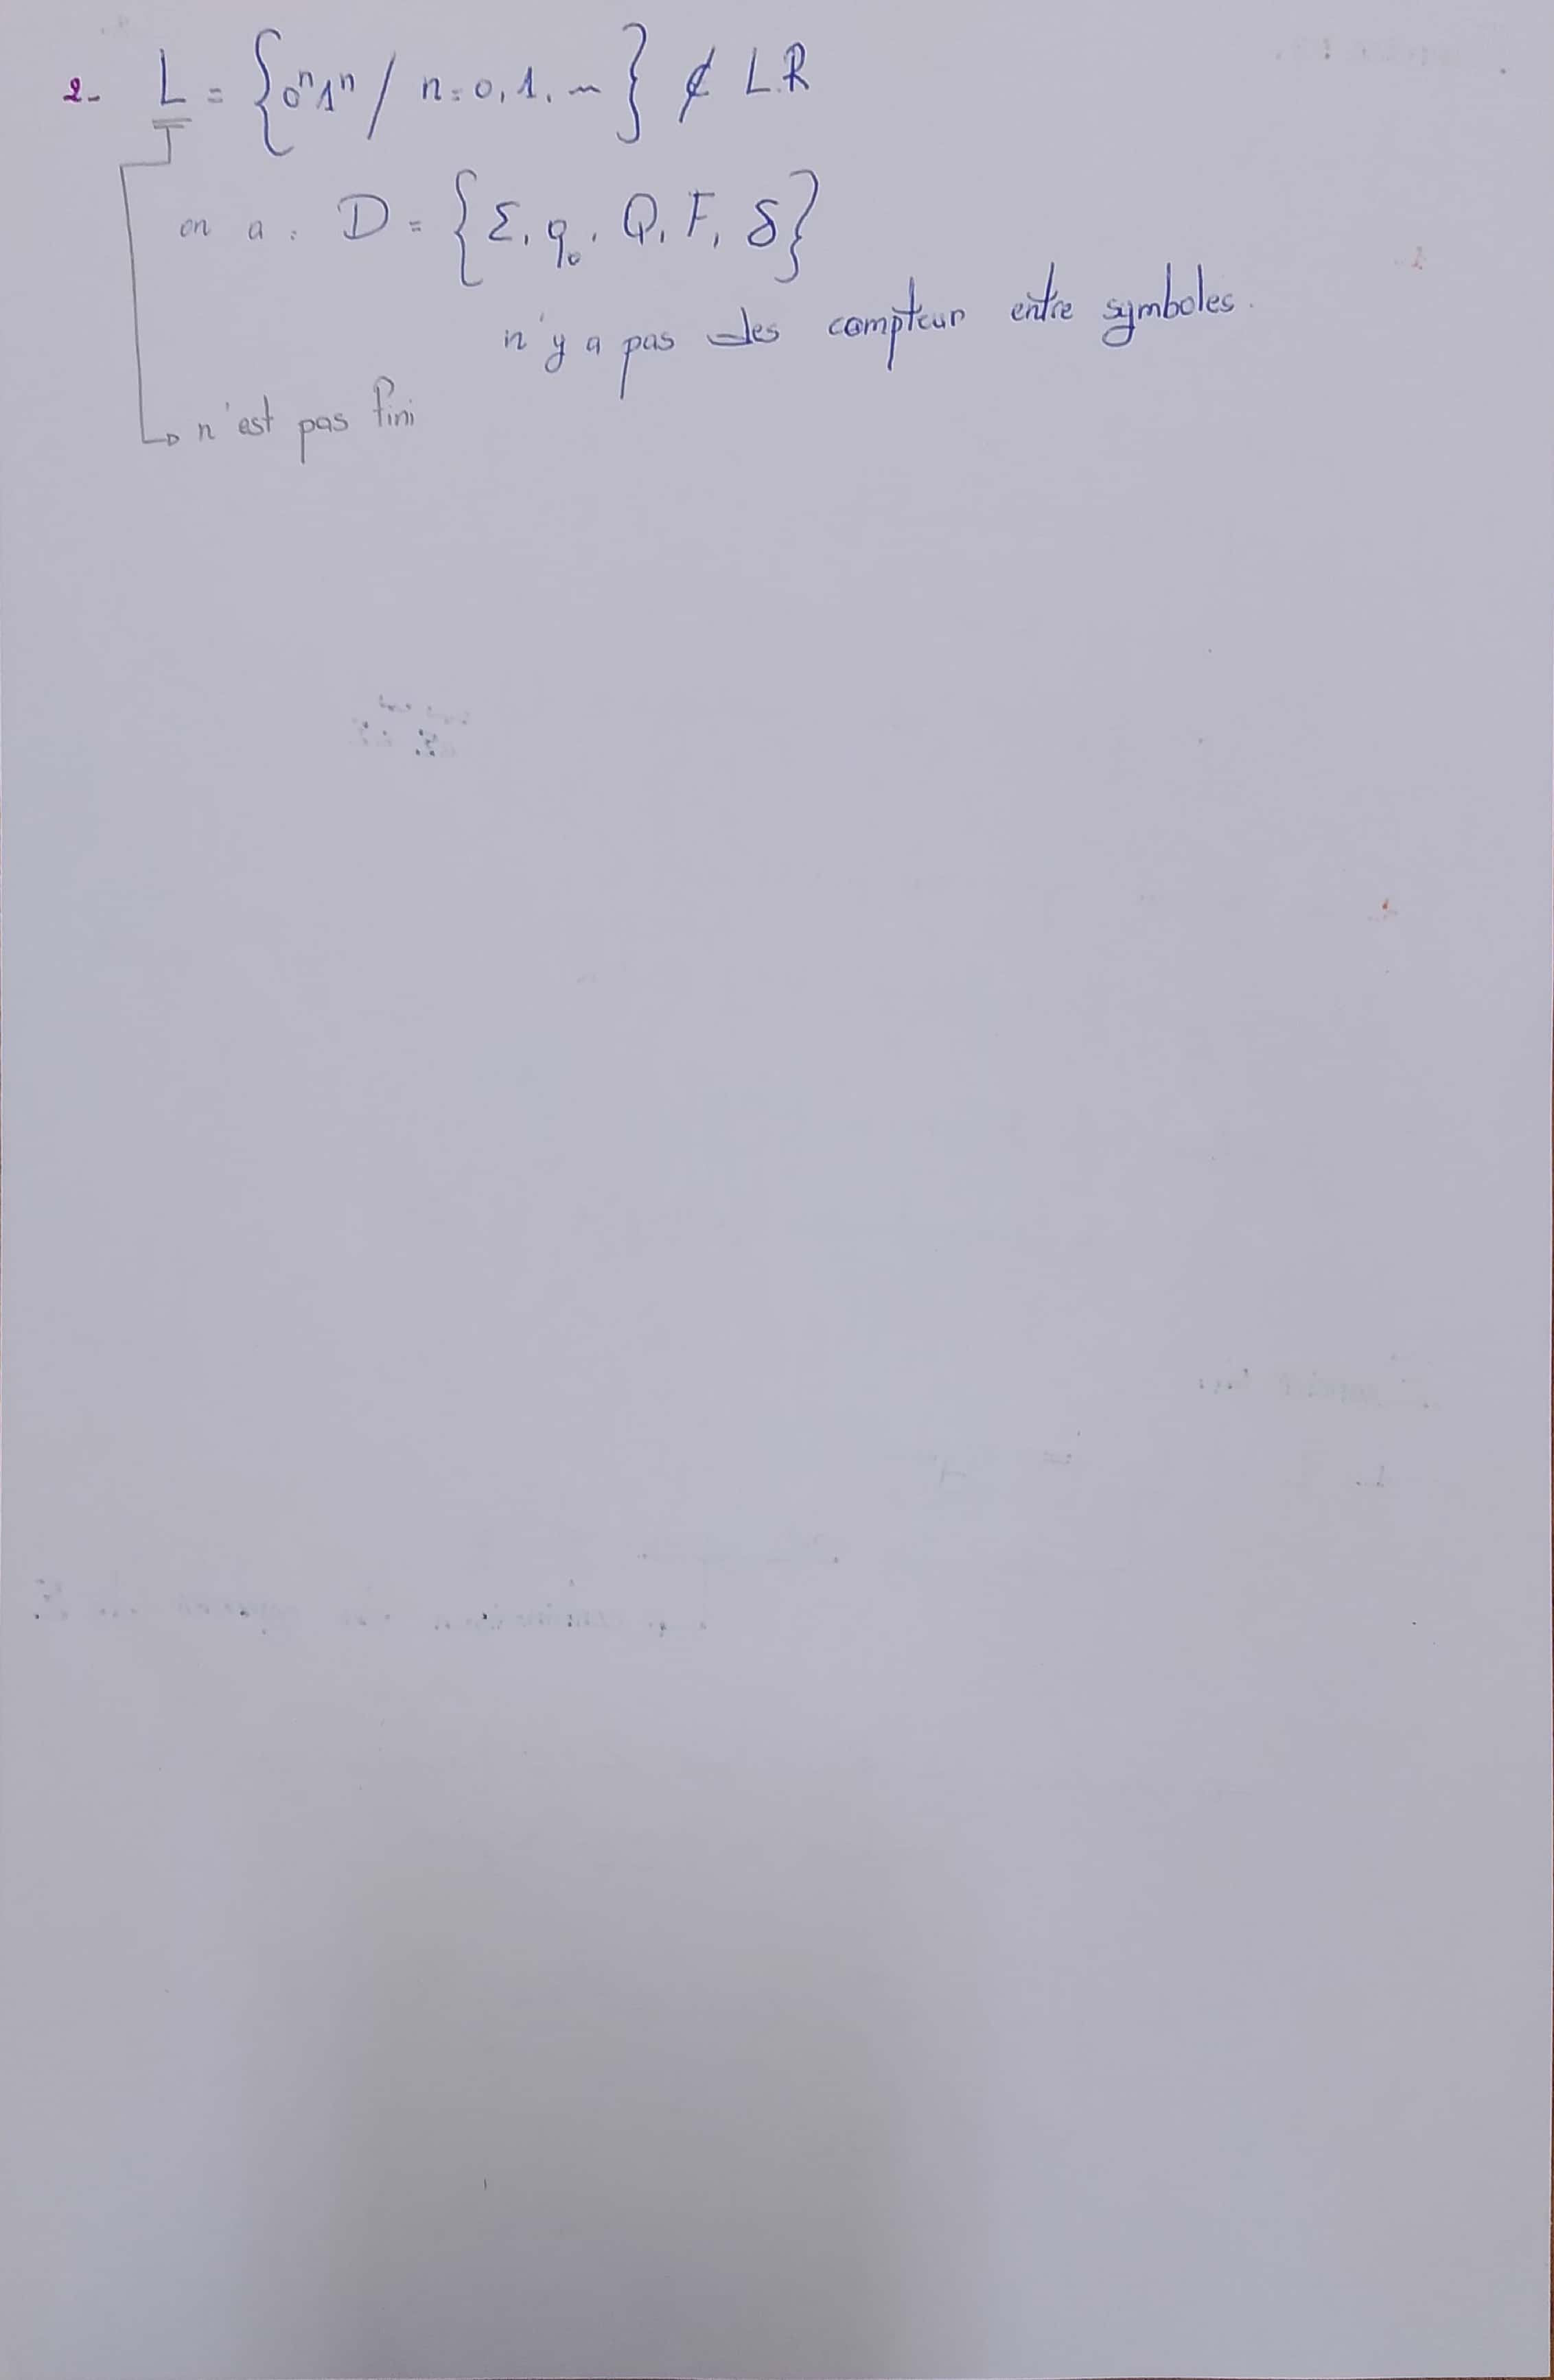 2- L = {0ⁿ1ⁿ / n=0, 1, ...} ∉ L.R
on a : D = {Σ, q₀, Q, F, δ}
n'y a pas des compteur entre symboles.
n'est pas fini